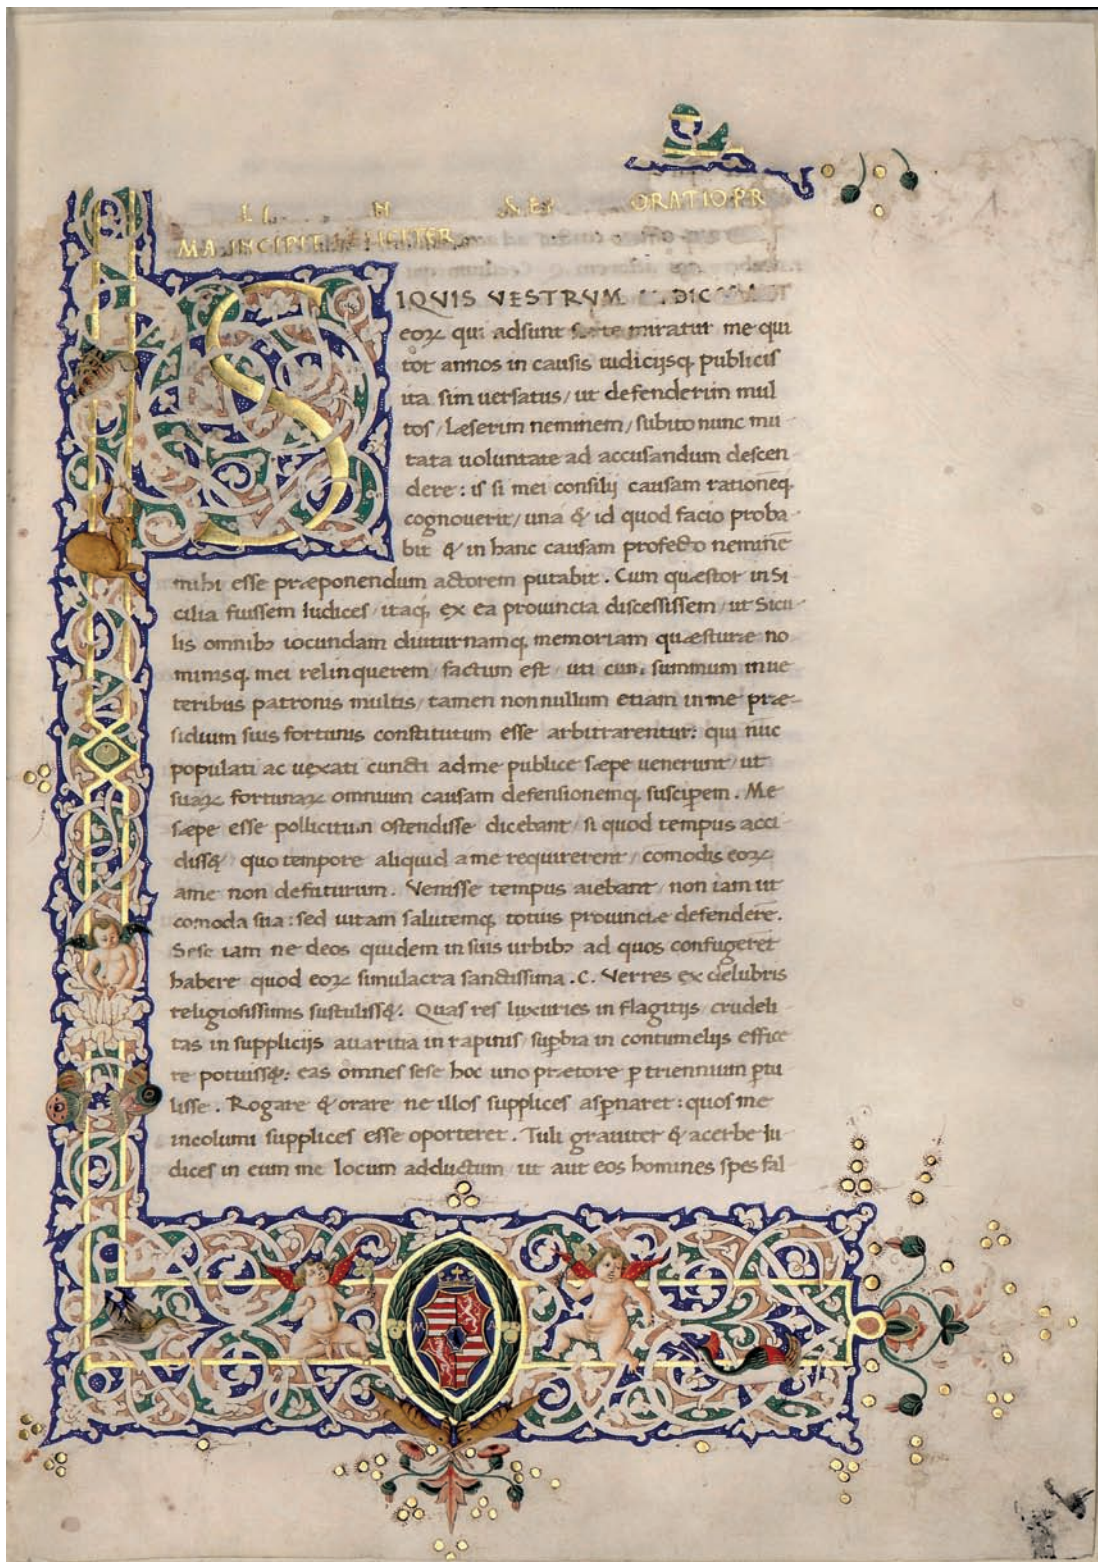 ORATIO PR
MA INCIPIT FELICITER
SIQVIS VESTRVM IVDICES AVT
eoꝝ qui adsunt forte miratur me qui
tot annos in causis iudicijsq; publicis
ita sim uersatus / ut defenderim mul
tos / læserim neminem / subito nunc mu-
tata uoluntate ad accusandum descen-
dere : is si mei consilij causam rationēq;
cognouerit / una & id quod facio proba-
bit & in hanc causam profecto neminē
mihi esse præponendum actorem putabit . Cum quæstor in Si
cilia fuissem Iudices / itaq; ex ea prouincia discessissem / ut Sicu-
lis omnibꝫ iocundam diuturnamq; memoriam quæsturæ no
minisq; mei relinquerem / factum est / uti cum summum in ue
teribus patronis multis / tamen non nullum etiam in me præ-
sidium suis fortunis constitutum esse arbitrarentur : qui nūc
populati ac uexati cuncti ad me publice sæpe uenerunt / ut
suaꝝ fortunaꝝ omnium causam defensionemq; susciperem . Me
sæpe esse pollicitum ostendisse dicebant / si quod tempus acci-
diss& / quo tempore aliquid a me requirerent / comodis eoꝝ
ame non defuturum . Venisse tempus aiebant / non iam ut
comoda sua : sed uitam salutemq; totius prouinciæ defenderē .
Sese iam ne deos quidem in suis urbibꝫ ad quos confugerēt
habere quod eoꝝ simulacra sanctissima . C. Verres ex delubris
religiosissimis sustuliss& : Quas res luxuries in flagitijs / crudeli
tas in supplicijs / auaritia in rapinis / suꝑbia in contumelijs effice
re potuiss& : eas omnes sese hoc uno prætore ꝑ triennium ꝑtu
lisse . Rogare & orare ne illos supplices asꝑnaret : quos me
incolumi supplices esse oporteret . Tuli grauiter & acerbe Iu-
dices in eum me locum adductum / ut aut eos homines spes fal-
M A
1